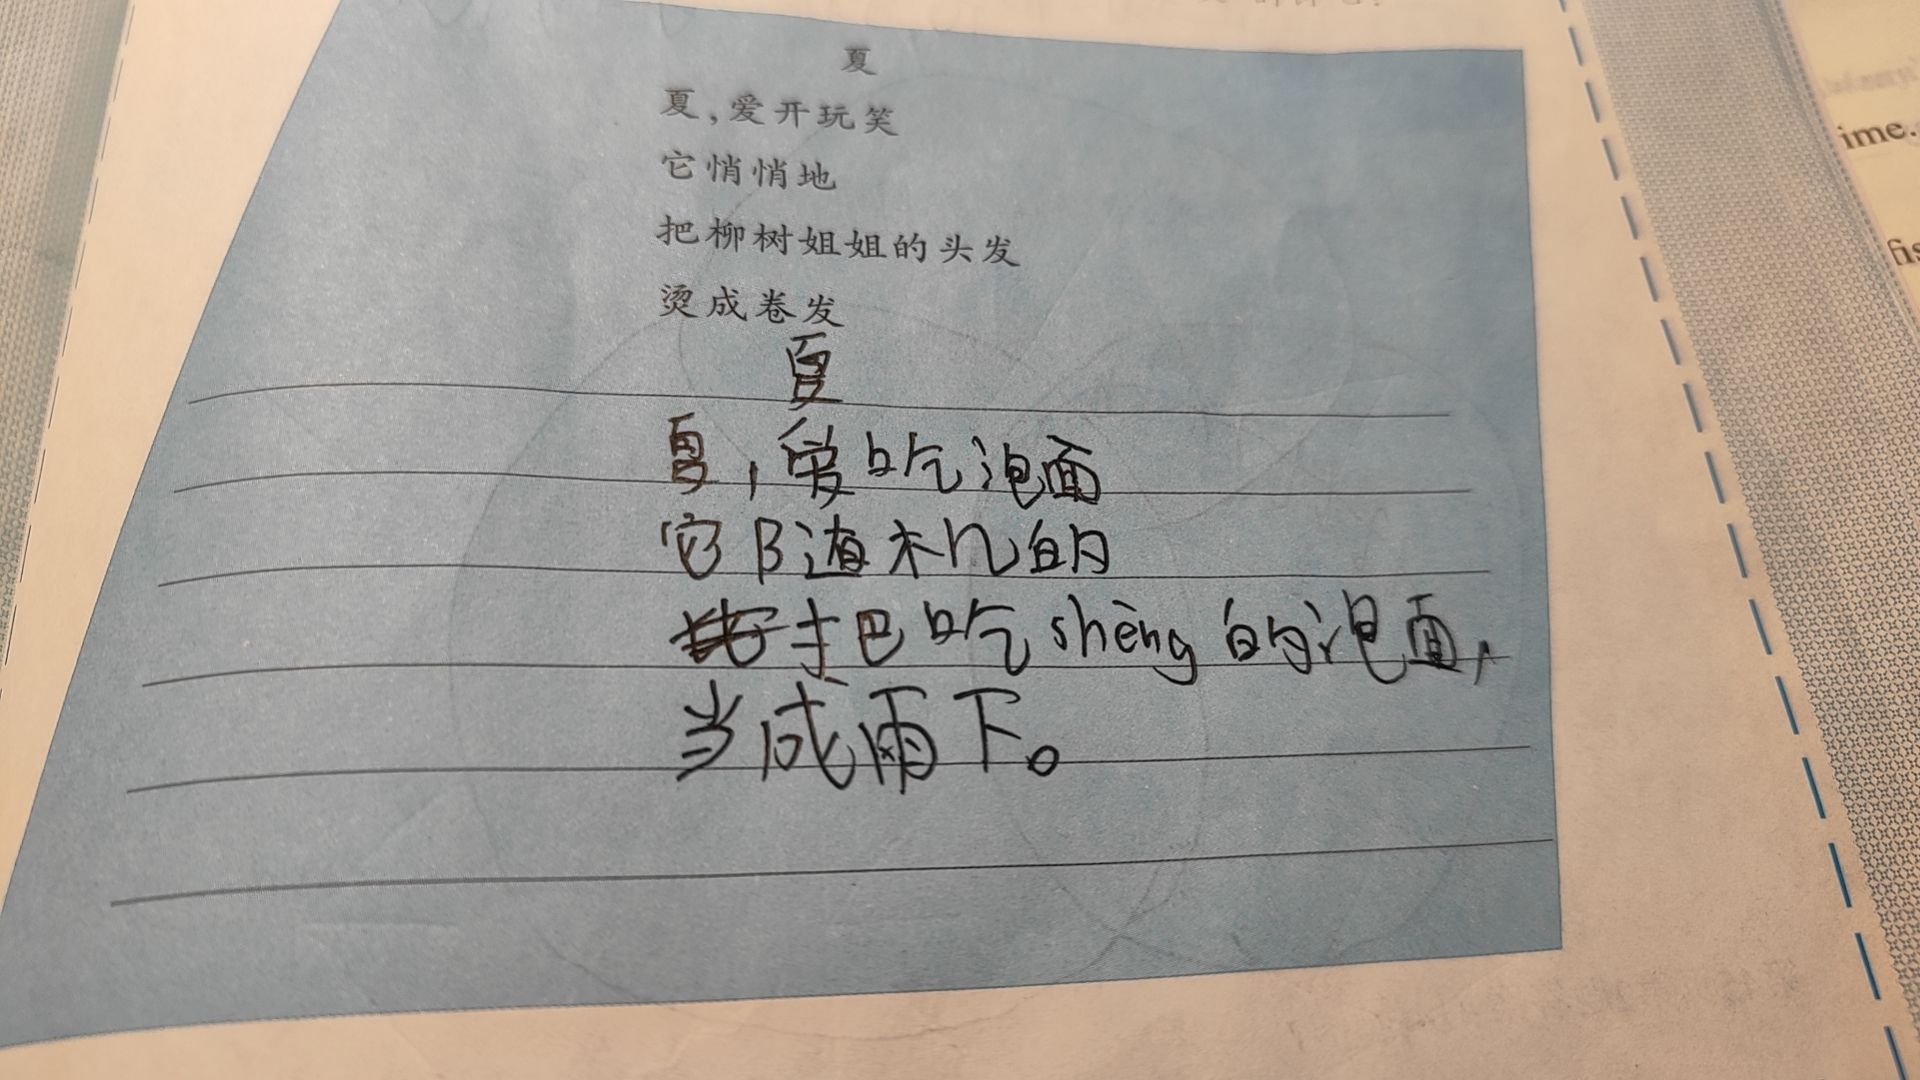 夏
夏,爱开玩笑
它悄悄地
把柳树姐姐的头发
烫成卷发
夏
夏,爱吃泡面
它随机的
把吃shèng的泡面,
当成雨下。
ime.
fis